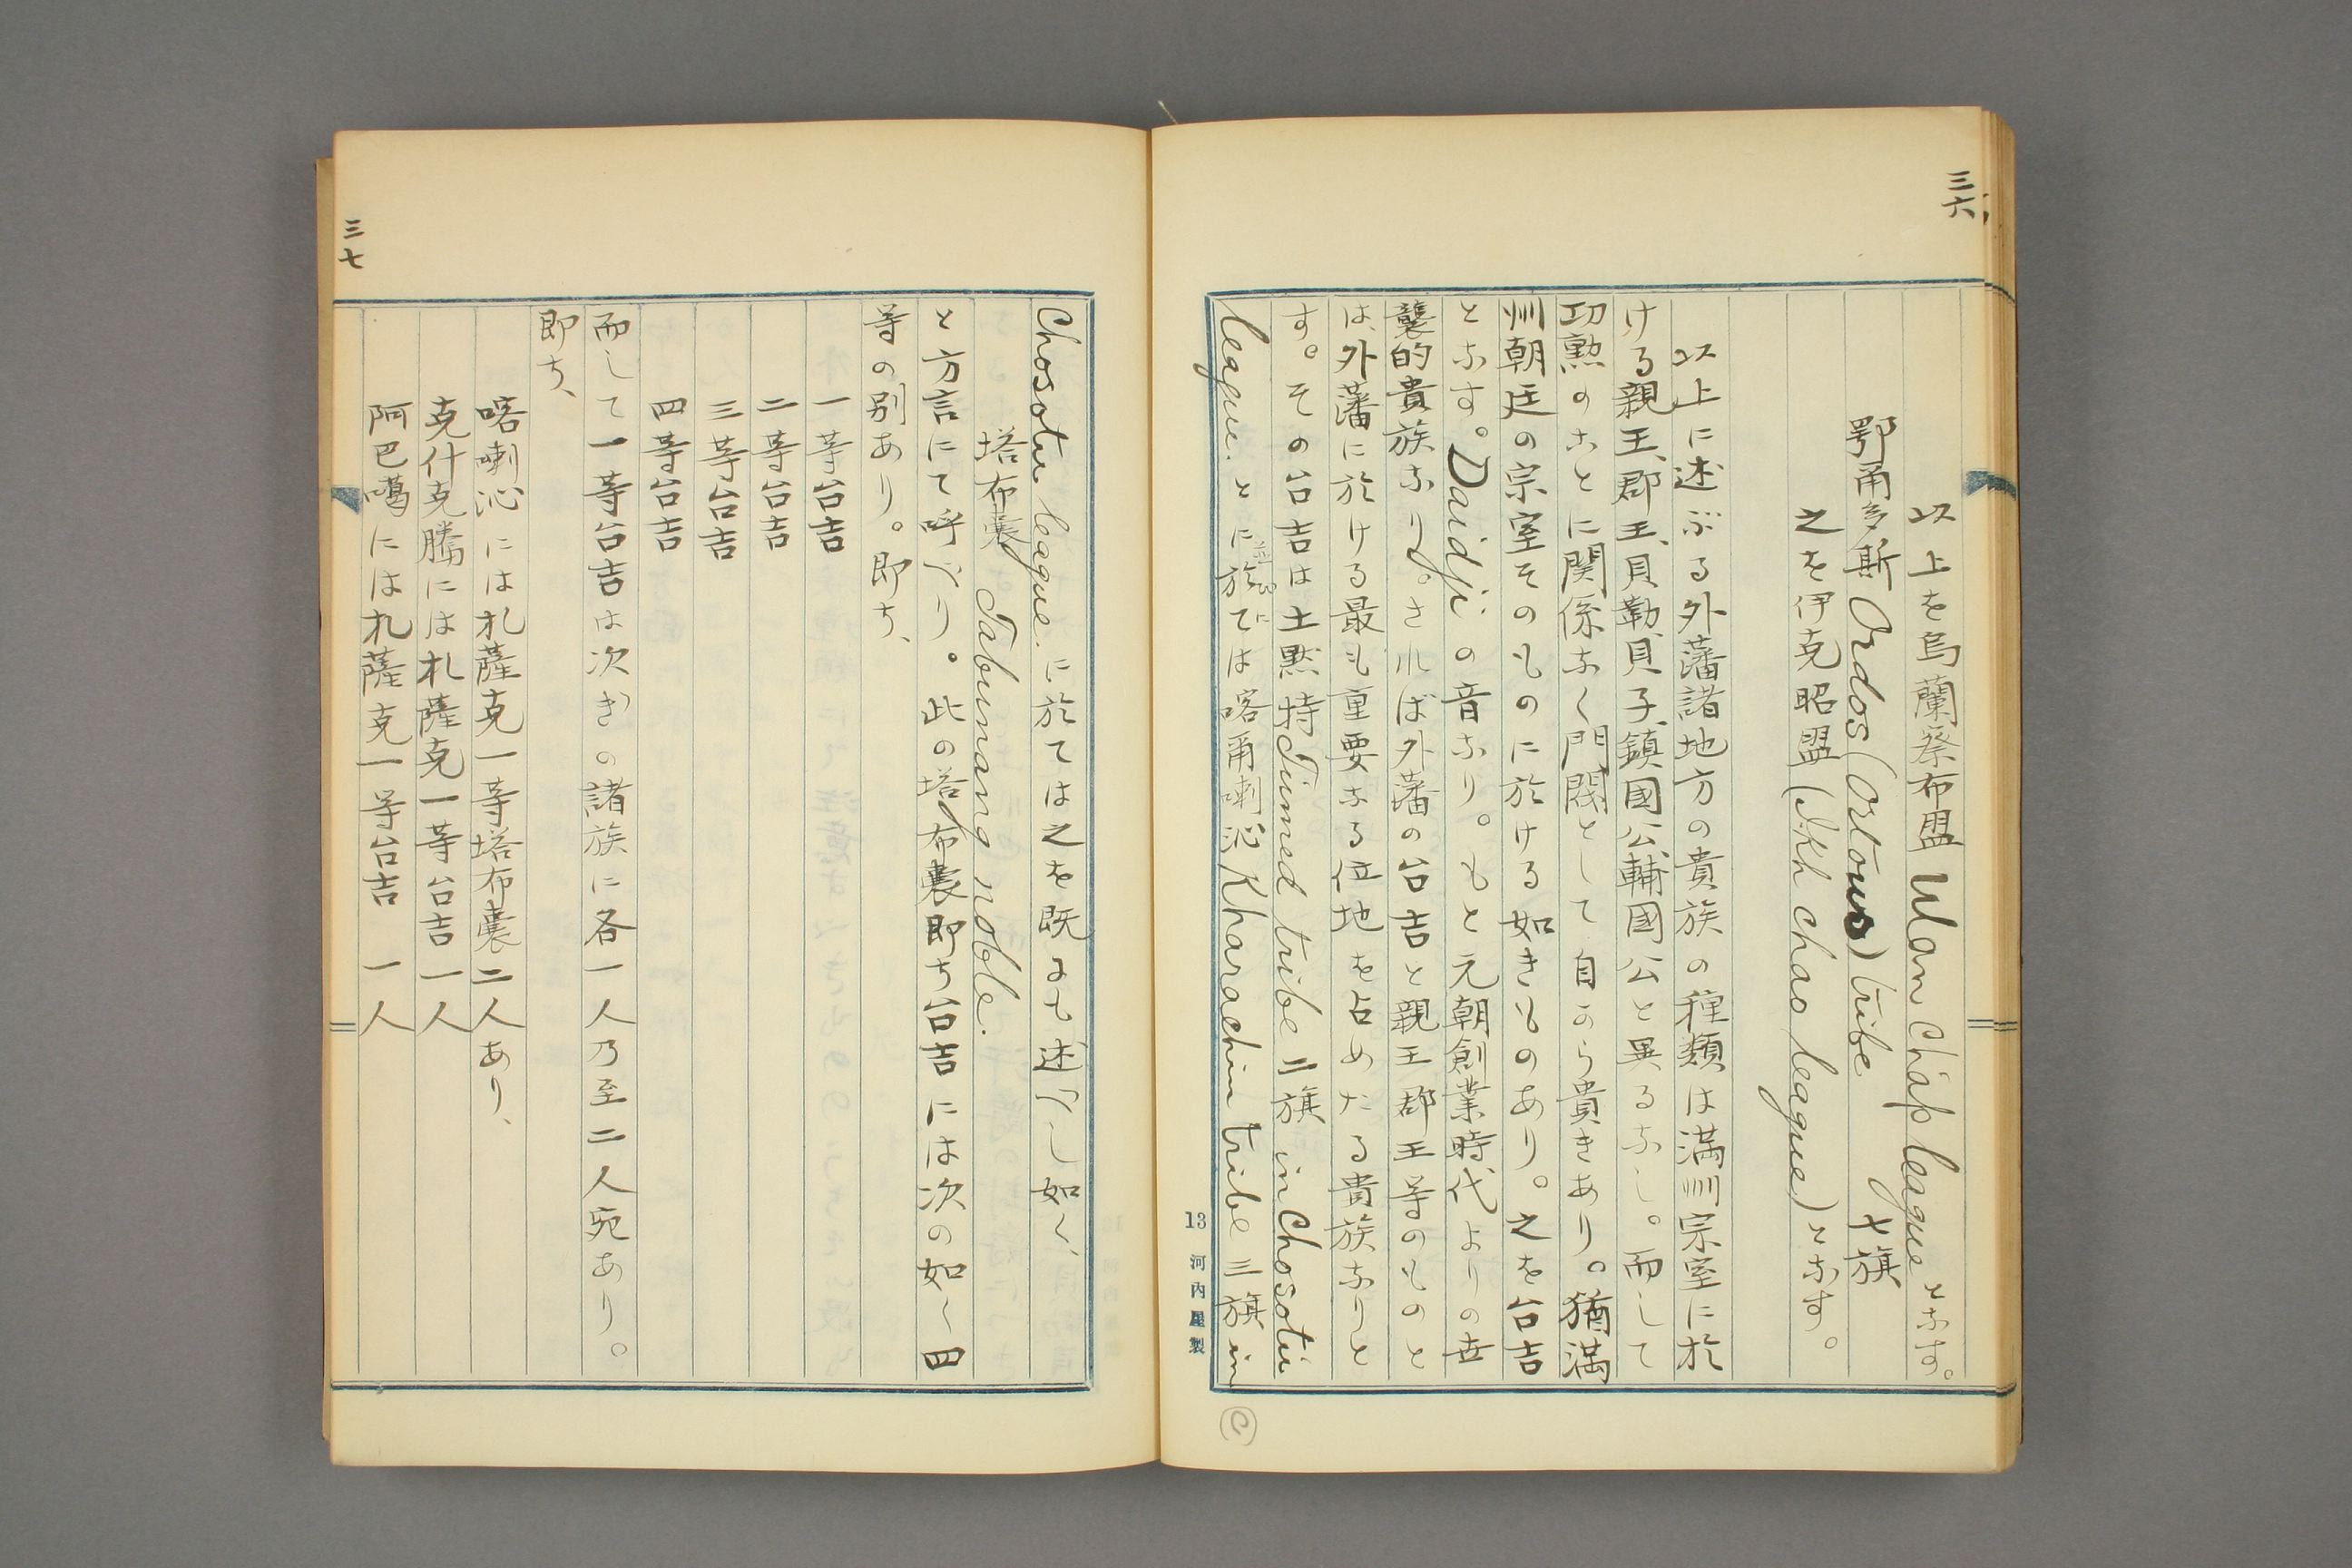 三六
以上を烏蘭察布盟 Ulan Chap leagueとなす。
鄂甬多斯 Ordos (Ortous) tribe 七旗
之を伊克昭盟 (Ikh Chao league) となす。
以上に述ぶる外藩諸地方の貴族の種類は満洲宗室に於
ける親王、郡王、貝勒、貝子、鎮國公、輔國公と異るなし。而して
功勲のことに関係なく門閥として自から貴きあり。猶満
州朝廷の宗室そのものに於ける如きものあり。之を台吉
となす。Daidjiの音なり。もと元朝創業時代よりの世
襲的貴族なり。されば外藩の台吉と親王郡王等のものと
は、外藩に於ける最も重要なる位地を占めたる貴族なりと
す。その台吉は土黙特 Tumed tribe 二旗 in Chosotu
league. とに並びに於ては喀甬喇沁 Kharachin tribe 三旗 in
13 河内屋製
C
三七
Chosotu league. に於ては之を既にも述べし如く、
塔布囊 Tabunang noble.
と方言にて呼べり。此の塔布囊即ち台吉には次の如く四
等の別あり。即ち、
一等台吉
二等台吉
三等台吉
四等台吉
而して一等台吉は次ぎの諸族に各一人乃至二人宛あり。
即ち、
喀喇沁には札薩克一等塔布囊二人あり、
克什克騰には札薩克一等台吉一人
阿巴噶には札薩克一等台吉 一人